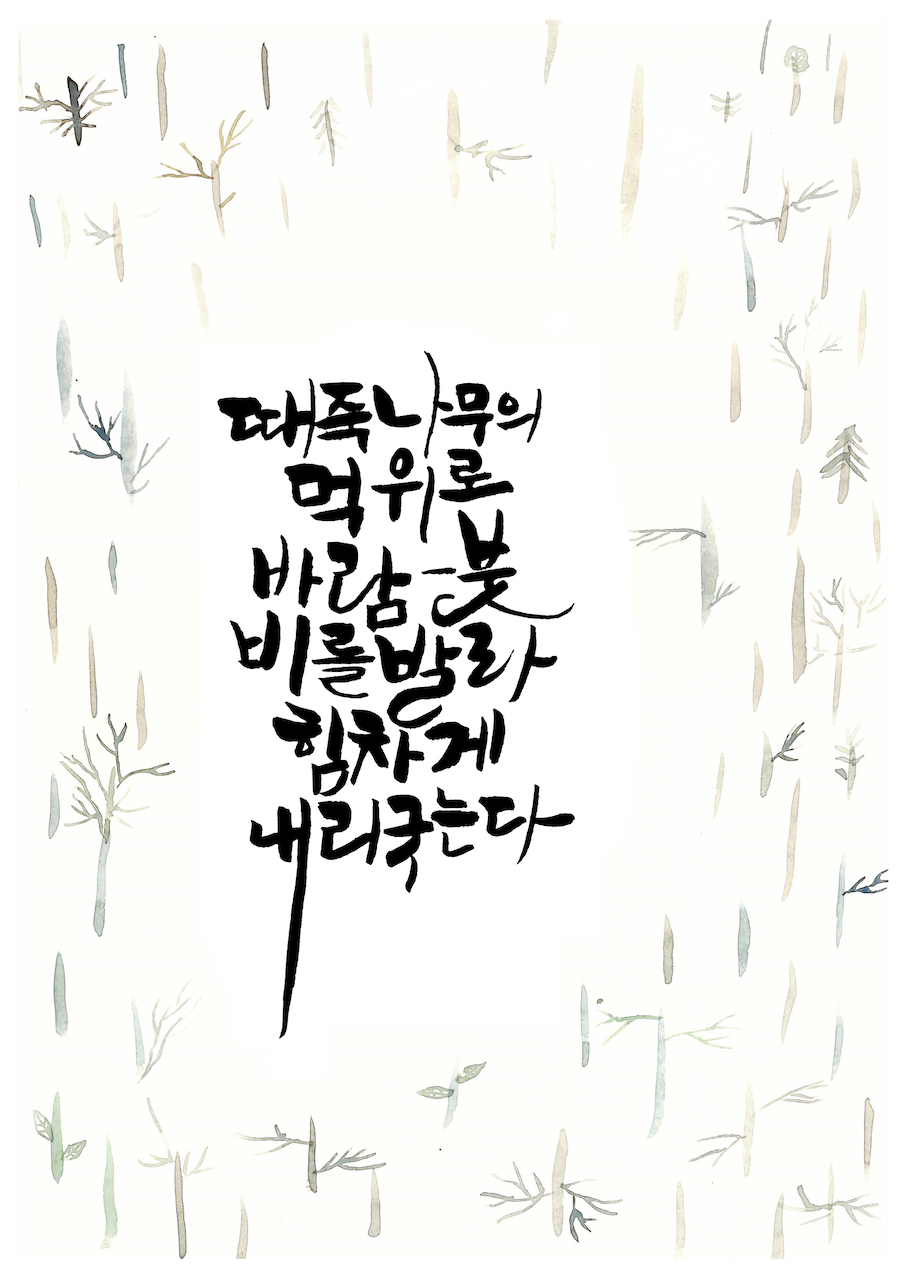 때죽나무의
먹 위로
바람-붓
비를 발라
힘차게
내리긋는다